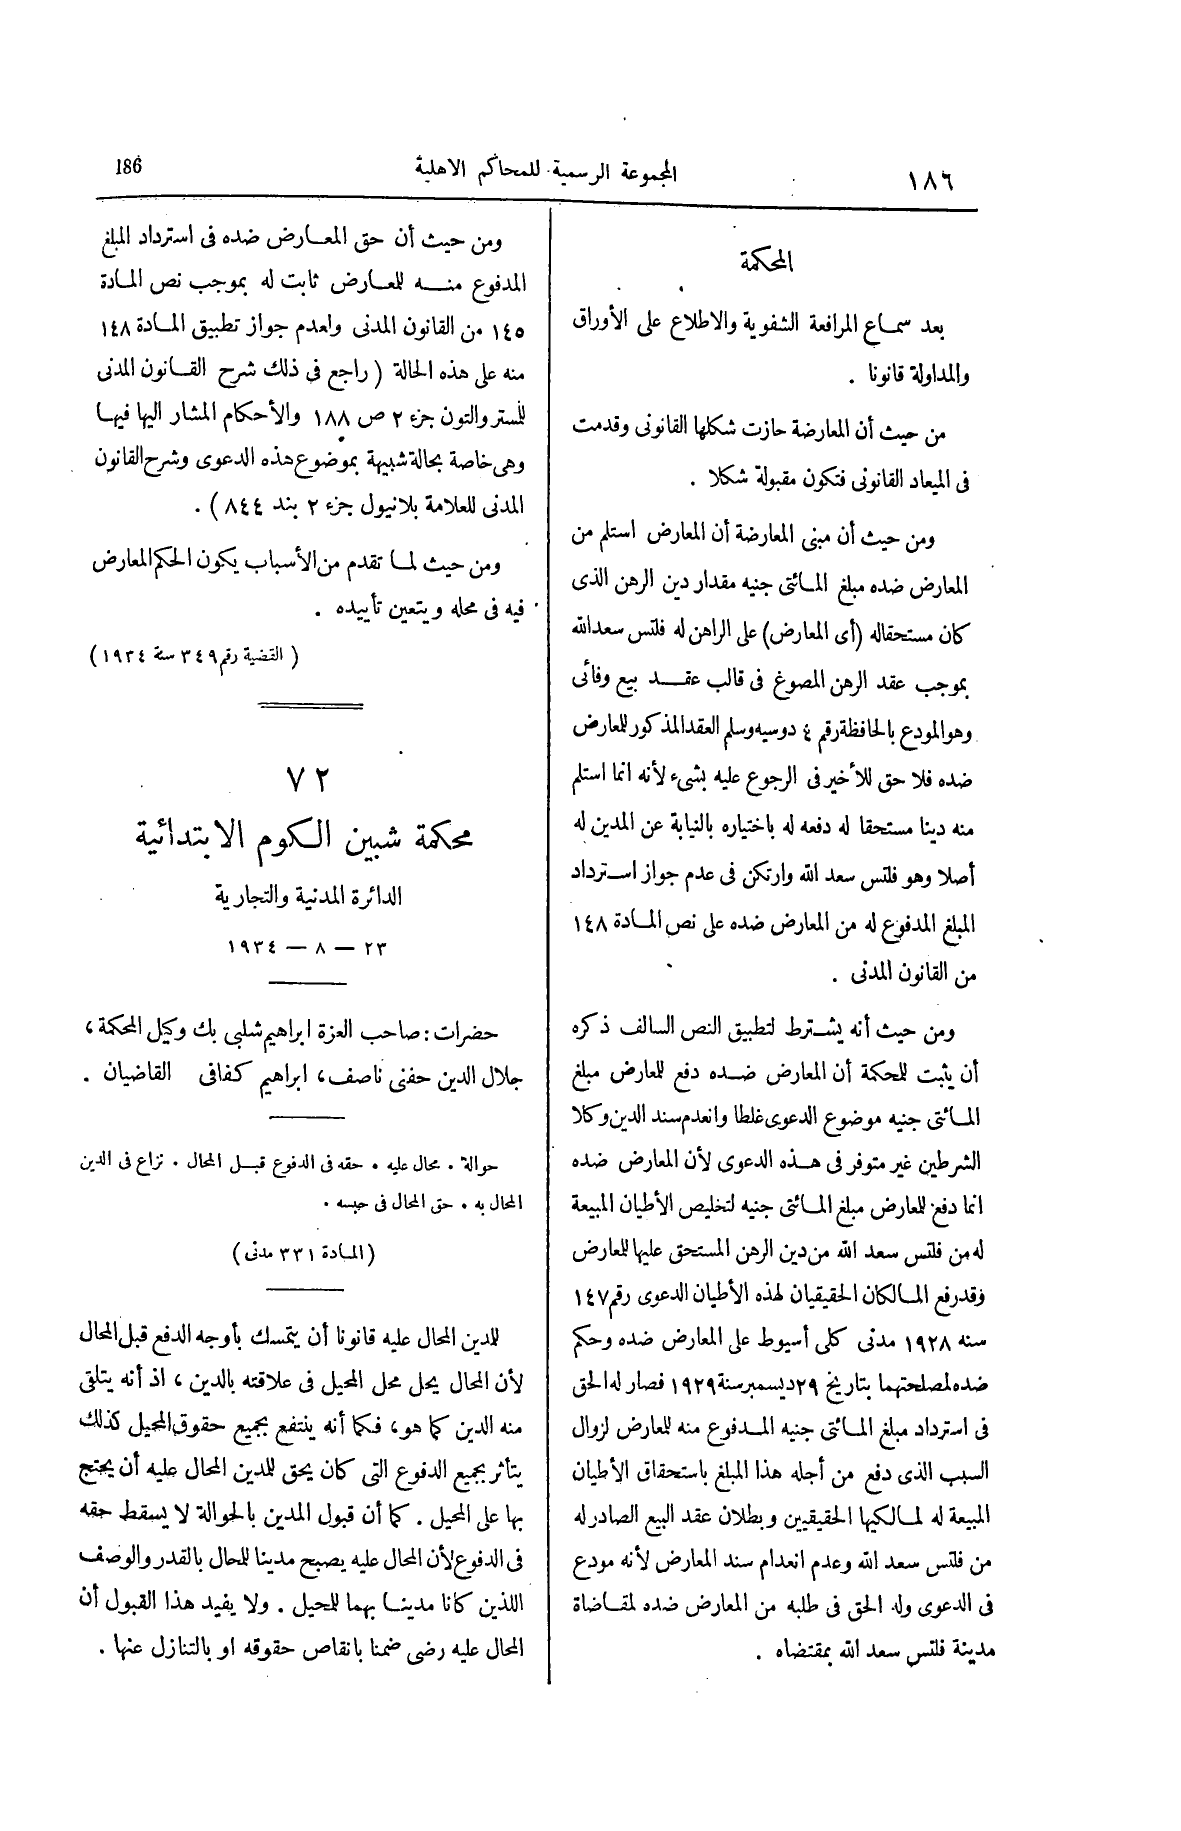 ١٨٦
المجموعة الرسمية للمحاكم الاهلية
186
المحكمة
بعد سماع المرافعة الشفوية والاطلاع على الأوراق
والمداولة قانونا .
من حيث أن المعارضة حازت شكلها القانونى وقدمت
فى الميعاد القانونى فتكون مقبولة شكلا .
ومن حيث أن مبنى المعارضة أن المعارض استلم من
المعارض ضده مبلغ المائتى جنيه مقدار دين الرهن الذى
كان مستحقا له (أى المعارض) على الراهن له فلتس سعد الله
بموجب عقد الرهن المصوغ فى قالب عقد بيع وفائى
وهو المودع بالحافظة رقم ٤ دوسيه وسلم العقد المذكور للمعارض
ضده فلا حق للأخير فى الرجوع عليه بشىء لأنه انما استلم
منه دينا مستحقا له دفعه له باختياره بالنيابة عن المدين له
أصلا وهو فلتس سعد الله وارتكن فى عدم جواز استرداد
المبلغ المدفوع له من المعارض ضده على نص المادة ١٤٨
من القانون المدنى .
ومن حيث أنه يشترط لتطبيق النص السالف ذكره
أن يثبت للمحكمة أن المعارض ضده دفع للمعارض مبلغ
المائتى جنيه موضوع الدعوى غلطا وانعدم سند الدين وكلا
الشرطين غير متوفر فى هذه الدعوى لأن المعارض ضده
انما دفع للمعارض مبلغ المائتى جنيه لتخليص الأطيان المبيعة
له من فلتس سعد الله من دين الرهن المستحق عليها للمعارض
وقد رفع المالكان الحقيقيان لهذه الأطيان الدعوى رقم ١٤٧
سنه ١٩٢٨ مدنى كلى أسيوط على المعارض ضده وحكم
ضده لمصلحتهما بتاريخ ٢٩ ديسمبر سنة ١٩٢٩ فصار له الحق
فى استرداد مبلغ المائتى جنيه المدفوع منه للمعارض لزوال
السبب الذى دفع من أجله هذا المبلغ باستحقاق الأطيان
المبيعة له لمالكيها الحقيقيين وبطلان عقد البيع الصادر له
من فلتس سعد الله وعدم انعدام سند المعارض لأنه مودع
فى الدعوى وله الحق فى طلبه من المعارض ضده لمقاضاة
مدينة فلتس سعد الله بمقتضاه .
ومن حيث أن حق المعارض ضده فى استرداد المبلغ
المدفوع منه للمعارض ثابت له بموجب نص المادة
١٤٥ من القانون المدنى ولعدم جواز تطبيق المادة ١٤٨
منه على هذه الحالة ( راجع فى ذلك شرح القانون المدنى
للمستر والتون جزء ٢ ص ١٨٨ والأحكام المشار اليها فيها
وهى خاصة بحالة شبيهة بموضوع هذه الدعوى وشرح القانون
المدنى للعلامة بلانيول جزء ٢ بند ٨٤٤ ) .
ومن حيث لما تقدم من الأسباب يكون الحكم المعارض
فيه فى محله ويتعين تأييده .
( القضية رقم ٣٤٩ سنة ١٩٣٤ )
٧٢
محكمة شبين الكوم الابتدائية
الدائرة المدنية والتجارية
٢٣ — ٨ — ١٩٣٤
حضرات : صاحب العزة ابراهيم شلبى بك وكيل المحكمة ،
جلال الدين حفنى ناصف ، ابراهيم كفافى القاضيان .
حوالة . محال عليه . حقه فى الدفوع قبل المحال . نزاع فى الدين
المحال به . حق المحال فى حبسه .
(المادة ٣٣١ مدنى)
للمدين المحال عليه قانونا أن يتمسك بأوجه الدفع قبل المحال
لأن المحال يحل محل المحيل فى علاقته بالدين ، اذ أنه يتلقى
منه الدين كما هو ، فكما أنه ينتفع بجميع حقوق المحيل كذلك
يتأثر بجميع الدفوع التى كان يحق للمدين المحال عليه أن يحتج
بها على المحيل . كما أن قبول المدين بالحوالة لا يسقط حقه
فى الدفوع لأن المحال عليه يصبح مدينا للمحال بالقدر والوصف
اللذين كانا مدينا بهما للمحيل . ولا يفيد هذا القبول أن
المحال عليه رضى ضمنا بانقاص حقوقه او بالتنازل عنها .